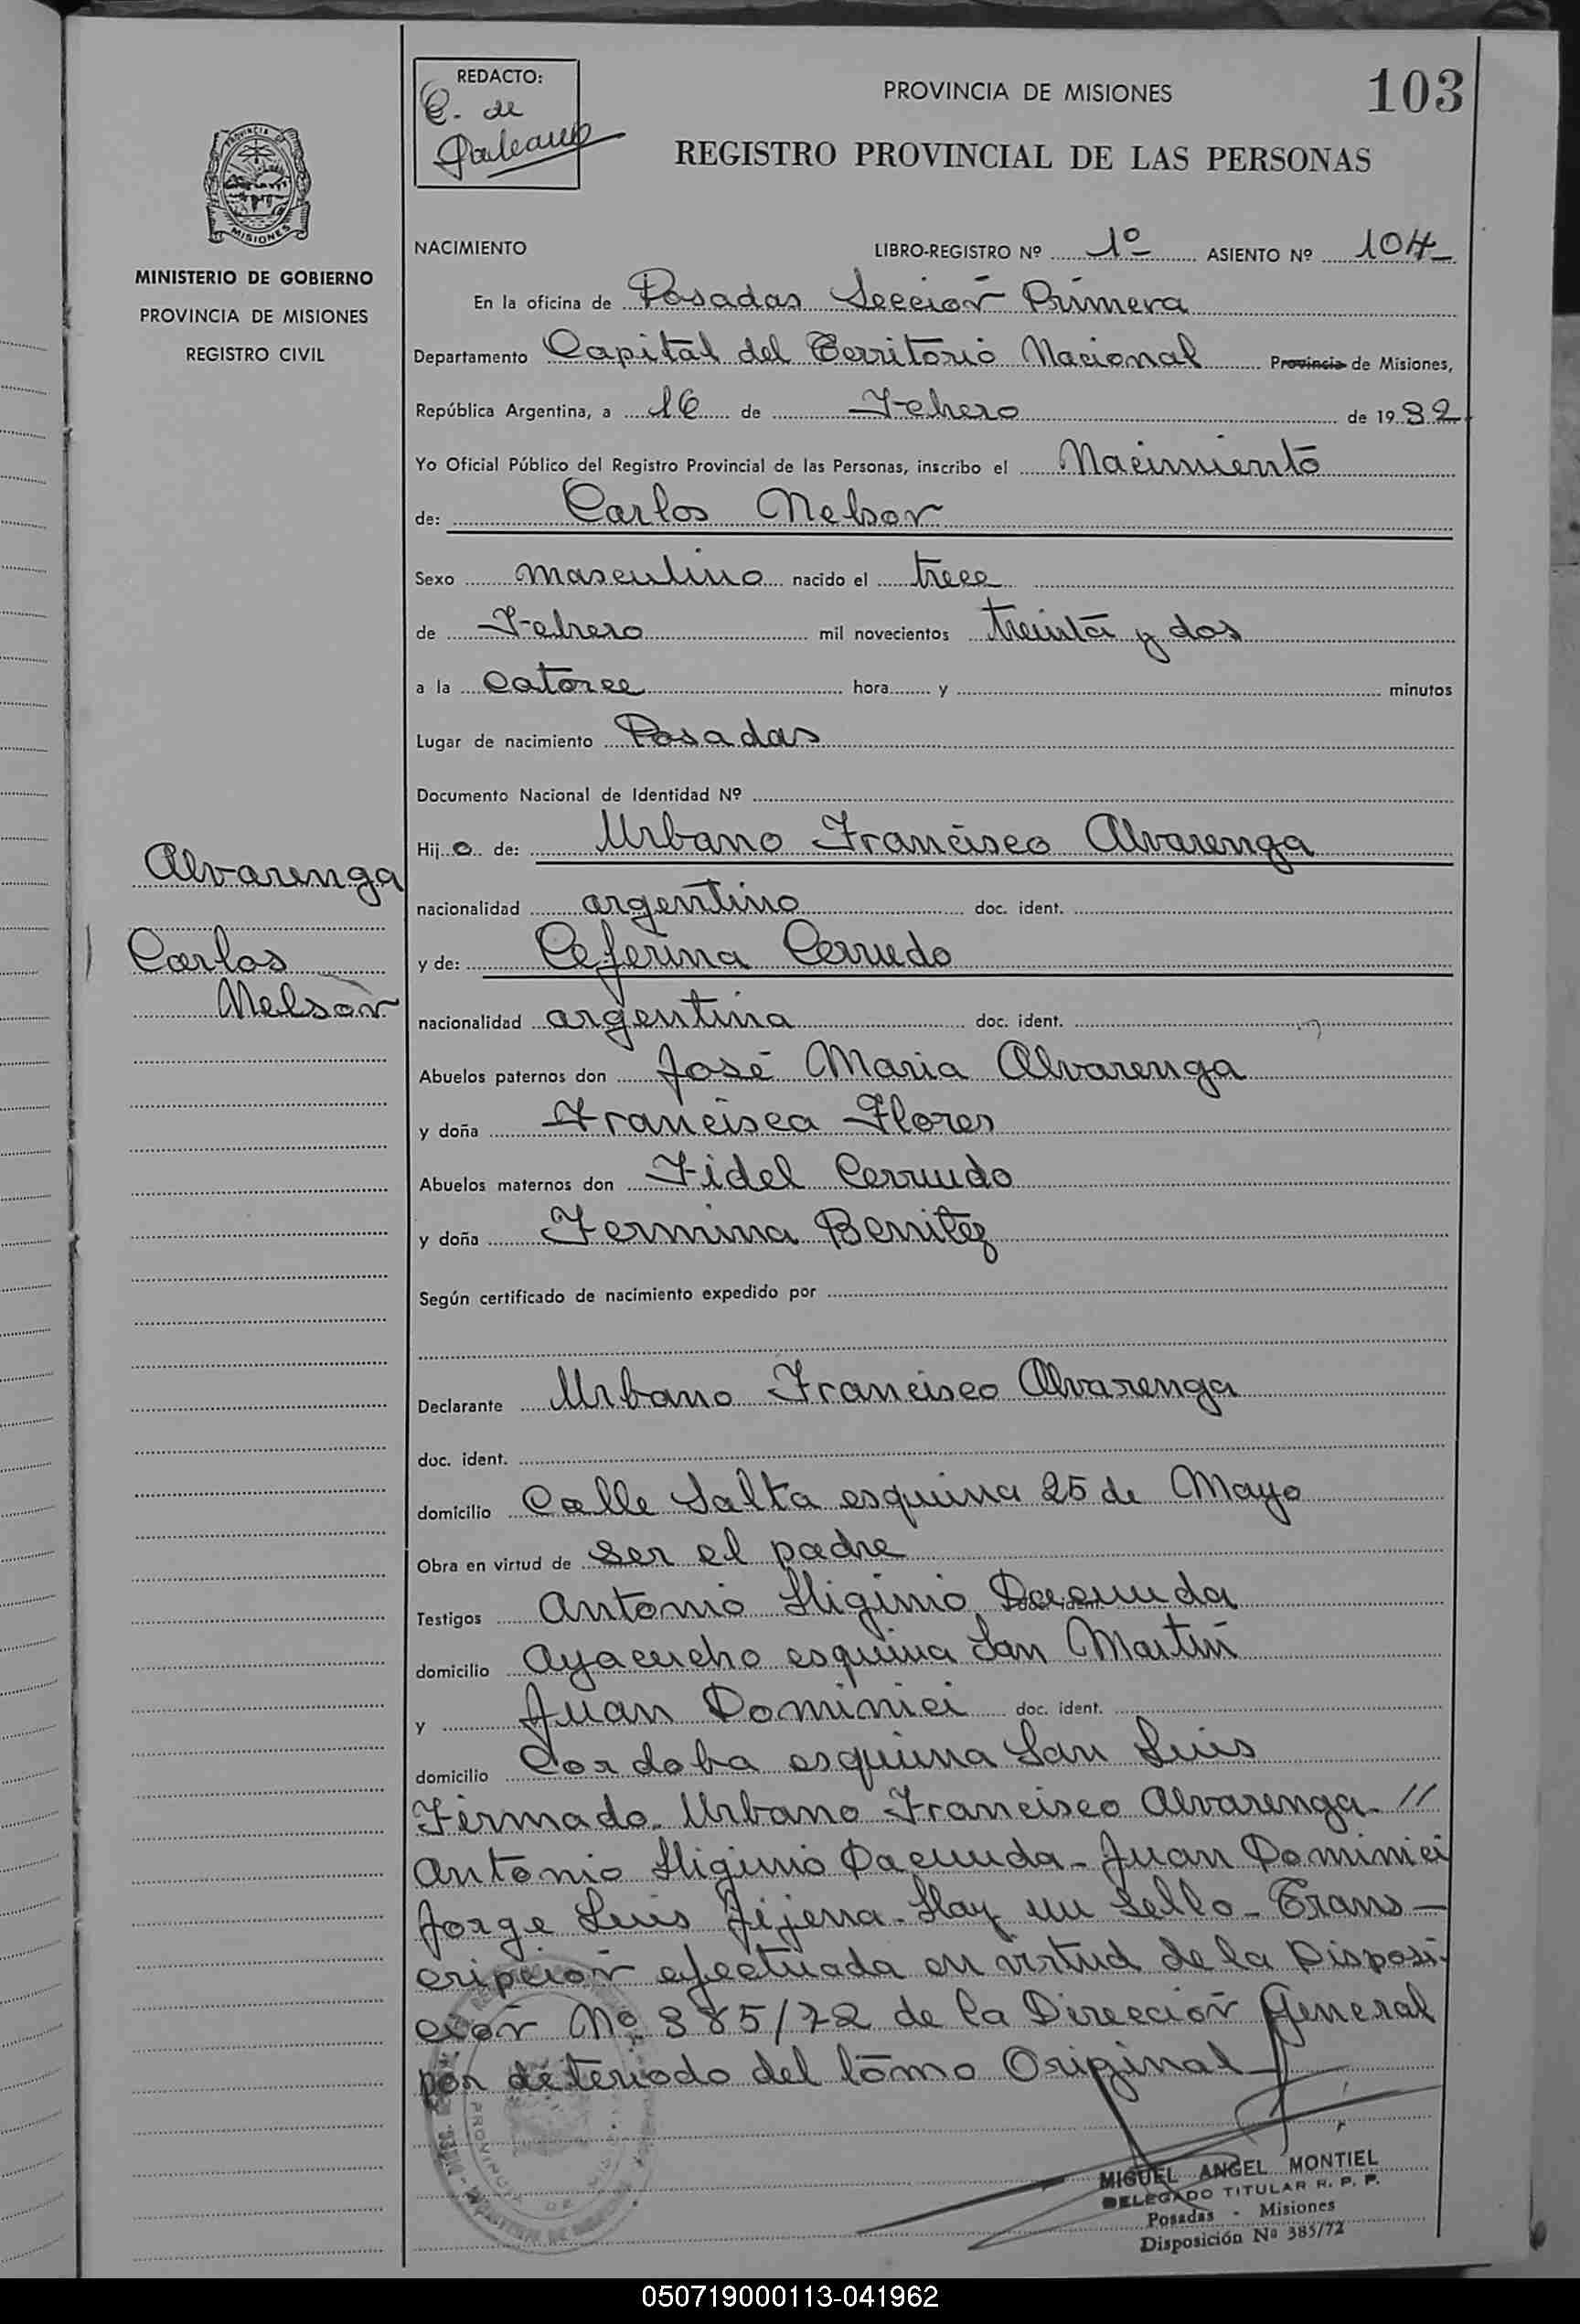 REDACTO:
C. de
Galeano
PROVINCIA DE MISIONES
103
REGISTRO PROVINCIAL DE LAS PERSONAS
PROVINCIA DE
MISIONES
MINISTERIO DE GOBIERNO
PROVINCIA DE MISIONES
REGISTRO CIVIL
NACIMIENTO LIBRO-REGISTRO Nº 1º ASIENTO Nº 104
En la oficina de Posadas Sección Primera
Departamento Capital del Territorio Nacional Provincia de Misiones,
República Argentina, a 16 de Febrero de 1932
Yo Oficial Público del Registro Provincial de las Personas, inscribo el Nacimiento
de: Carlos Nelson
Sexo masculino nacido el trece
de Febrero mil novecientos treinta y dos
a la catorce hora y minutos
Lugar de nacimiento Posadas
Documento Nacional de Identidad Nº
Hijo de: Urbano Francisco Alvarenga
Alvarenga
nacionalidad argentino doc. ident.
Carlos
Nelson
y de: Ceferina Cerrudo
nacionalidad argentina doc. ident.
Abuelos paternos don José Maria Alvarenga
y doña Francisca Flores
Abuelos maternos don Fidel Cerrudo
y doña Fermina Benitez
Según certificado de nacimiento expedido por
Declarante Urbano Francisco Alvarenga
doc. ident.
domicilio Calle Salta esquina 25 de Mayo
Obra en virtud de ser el padre
Testigos Antonio Higinio Dacunda
domicilio Ayacucho esquina San Martin
y Juan Dominici doc. ident.
domicilio Cordoba esquina San Luis
Firmado. Urbano Francisco Alvarenga. //
Antonio Higinio Dacunda - Juan Dominici
Jorge Luis Jijena - Hay un sello - Trans-
cripción efectuada en virtud de la Disposi-
ción Nº 385/72 de la Dirección General
por deteriodo del tomo Original
MIGUEL ANGEL MONTIEL
DELEGADO TITULAR R. P. P.
Posadas - Misiones
Disposición Nº 385/72
050719000113-041962